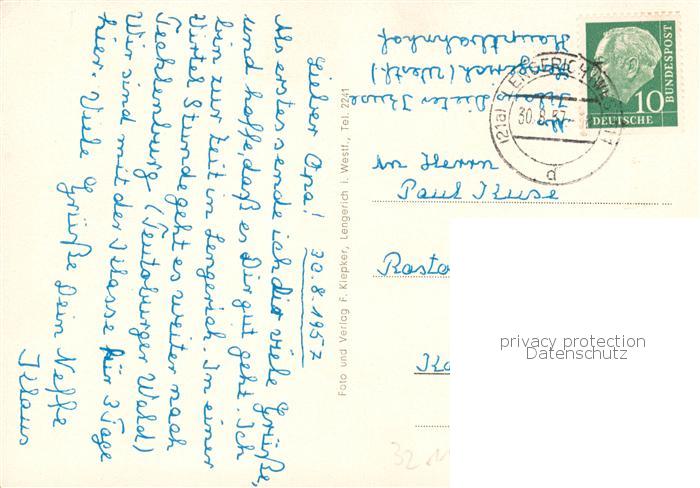 Lieber Opa! 30.8.1957
Als erstes sende ich dir viele Grüße,
und hoffe, daß es Dir gut geht. Ich
bin zur Zeit in Lengerich. In einer
Virtel Stunde geht es weiter nach
Tecklenburg (Teutoburger Wald)
Wir sind mit der Klasse für 3 Tage
hier. Viele Grüße Dein Neffe
Klaus
Foto und Verlag F. Klepker, Lengerich i. Westf., Tel. 2241
Klaus Dieter Kuse
Lengerich (Westf.)
Hauptbahnhof
(21a) LENGERICH
30.8.57
d
10
DEUTSCHE
BUNDESPOST
An Herrn
Paul Kuse
Rasto
privacy protection
Datenschutz